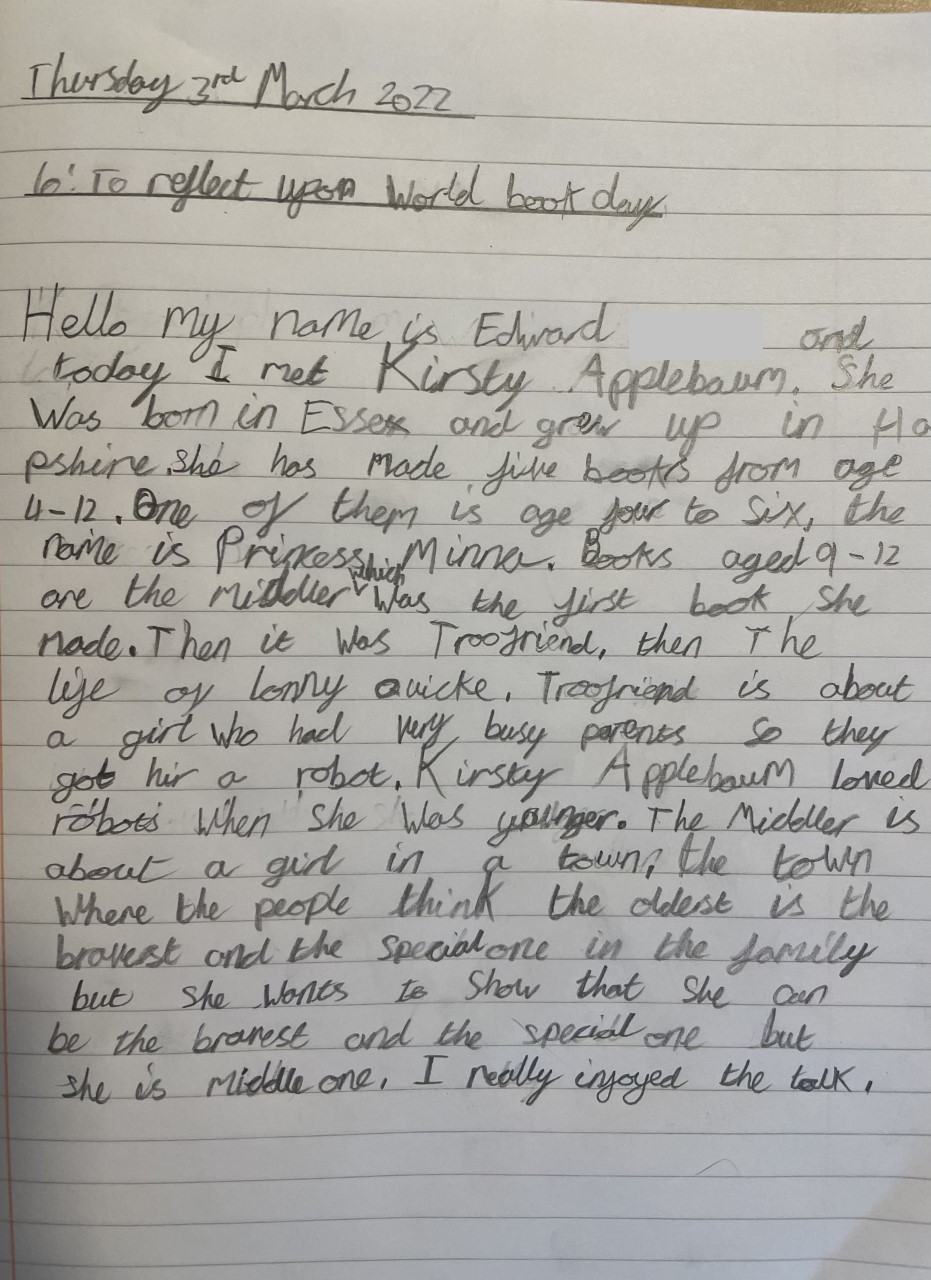 Thursday 3rd March 2022
lo: To reflect upon World book day
Hello my name is Edward and
today I met Kirsty Applebaum. She
Was born in Essex and grew up in Ha
pshire. She has made five books from age
4-12. One of them is age four to six, the
name is Princess Minna. Books aged 9-12
are the middler which was the first book she
made. Then it was Troofriend, then The
life of lonny quicke. Troofriend is about
a girl who had very busy parents so they
got hir a robot. Kirsty Applebaum loved
robots when she was younger. The Middler is
about a girl in a town, the town
Where the people think the oldest is the
bravest and the special one in the family
but she wants to show that she can
be the bravest and the special one but
she is middle one. I really injoyed the talk.